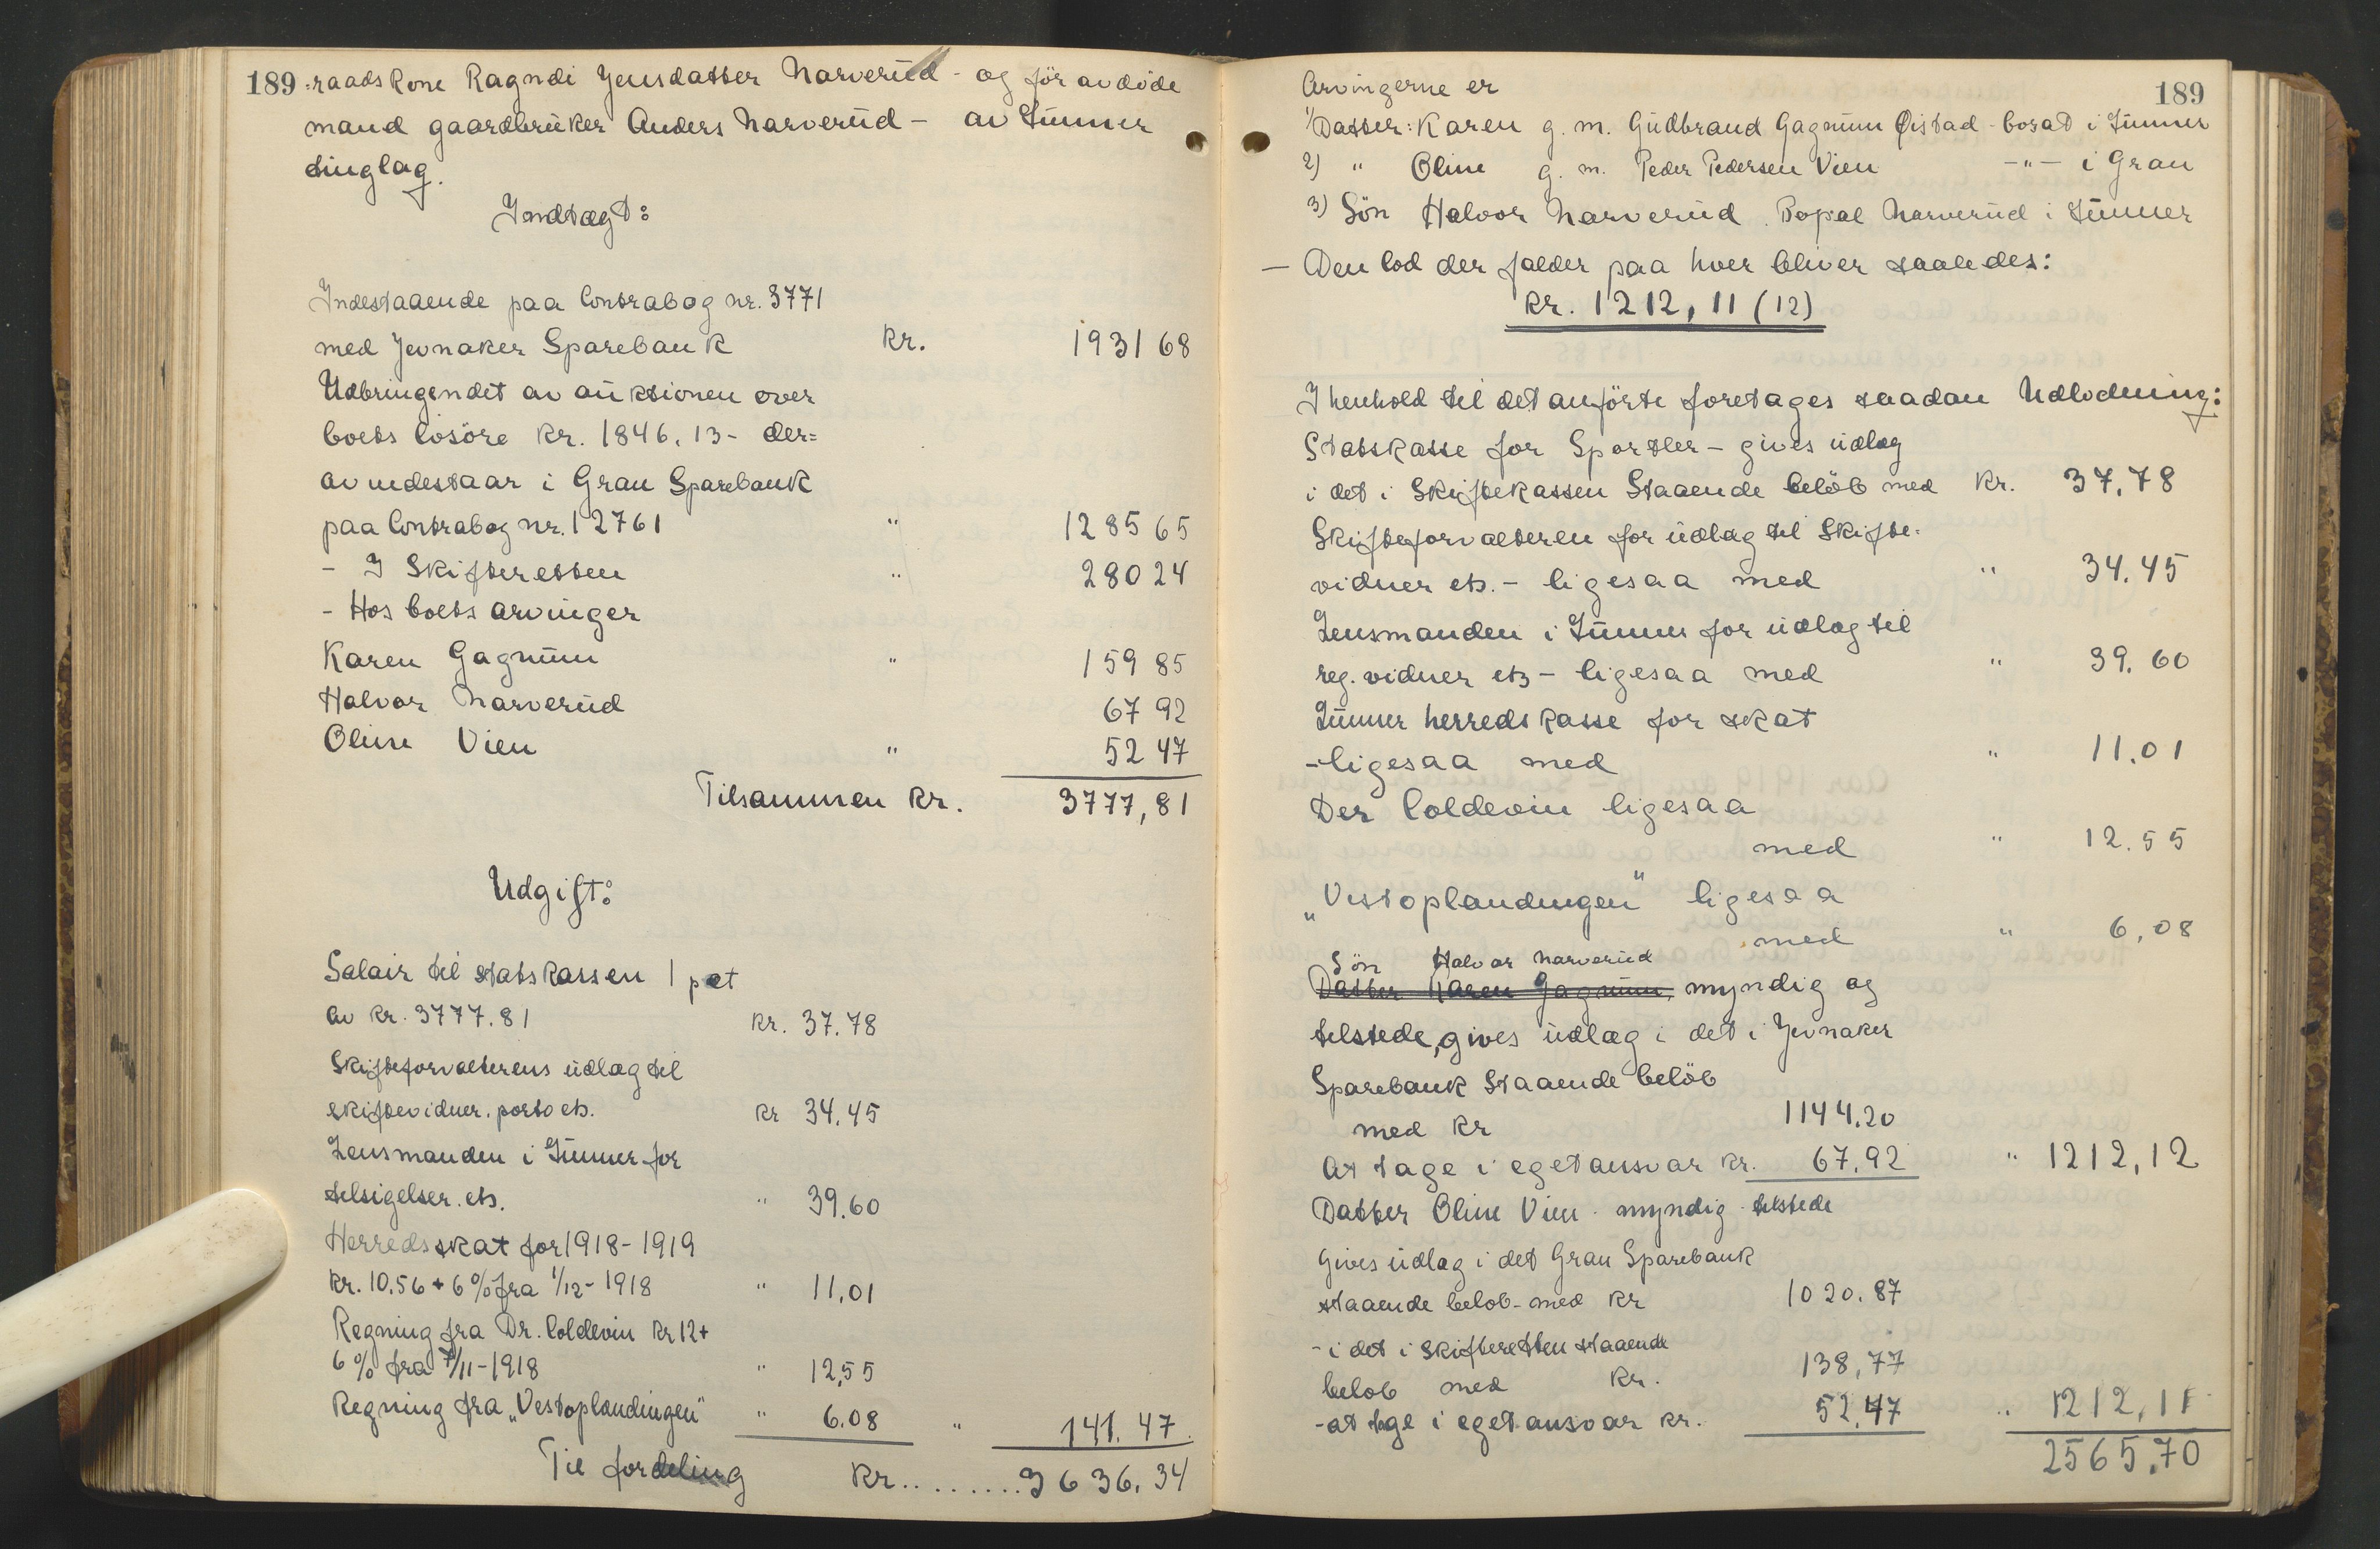 189 :raadskone Ragndi Jensdatter Narverud - og för avdöde
mand gaardbruker Anders Narverud - av Lunner
tinglag.
Indtægt:
Indestaaende paa Contrabog nr. 3771
med Jevnaker Sparebank kr. 1931 68
Udbringendet av auktionen over
boets lösöre kr. 1846,13 - der=
av indestaar i Gran Sparebank
paa Contrabog nr. 12761 " 1285 65
- I Skifteretten " 280 24
- Hos boets arvinger
Karen Gagnum " 159 85
Halvor Narverud 67 92
Oline Vien " 52 47
Tilsammen kr. 3777,81
Udgift:
Salair til statskassen 1 pct
av kr. 3777.81 kr. 37.78
Skifteforvalterens udlæg til
skiftevidner, porto etc. kr 34.45
Lensmanden i Lunner for
tilsigelser etc. " 39.60
Herredsskat for 1918-1919
kr. 10.56 + 6% fra 1/12-1918 " 11,01
Regning fra Dr. Coldevin kr 12+
6% fra 7/11-1918 " 12,55
Regning fra „Vestoplandingen" " 6.08 " 141.47
Til fordeling kr.........3636.34
189
Arvingerne er
1) Datter: Karen g. m. Gudbrand Gagnum Øistad - bosat i Lunner
2) " Oline g. m. Peder Pedersen Vien -"- i Gran
3) Sön Halvor Narverud. Bopæl Narverud i Lunner
- Den lod der falder paa hver bliver saaledes:
kr. 1212,11 (12)
I henhold til det anförte foretages saadan Udlodning:
Statskasse for Sportler - gives udlæg
i det i Skiftekassen Staaende belöb med kr. 37.78
Skifteforvalteren for udlæg til Skifte-
vidner etc. - ligesaa med " 34.45
Lensmanden i Lunner for udlæg til
reg. vidner etc - ligesaa med " 39.60
Lunner herredskasse for skat
- ligesaa med " 11.01
Dr Coldevin ligesaa
med " 12.55
„Vestoplandingen" ligesaa
med " 6,08
Sön Halvor Narverud
Datter Karen Gagnum, myndig og
tilstede, gives udlæg i det i Jevnaker
Sparebank Staaende belöb
med kr 1144.20
At tage i eget ansvar kr. 67.92 " 1212,12
Datter Oline Vien - myndig - tilstede
gives udlæg i det Gran Sparebank
staaende belöb - med kr 1020.87
- i det i skifteretten staaende
belöb med kr. 138,77
- at tage i eget ansvar kr. 52.47 " 1212,11
2565,70